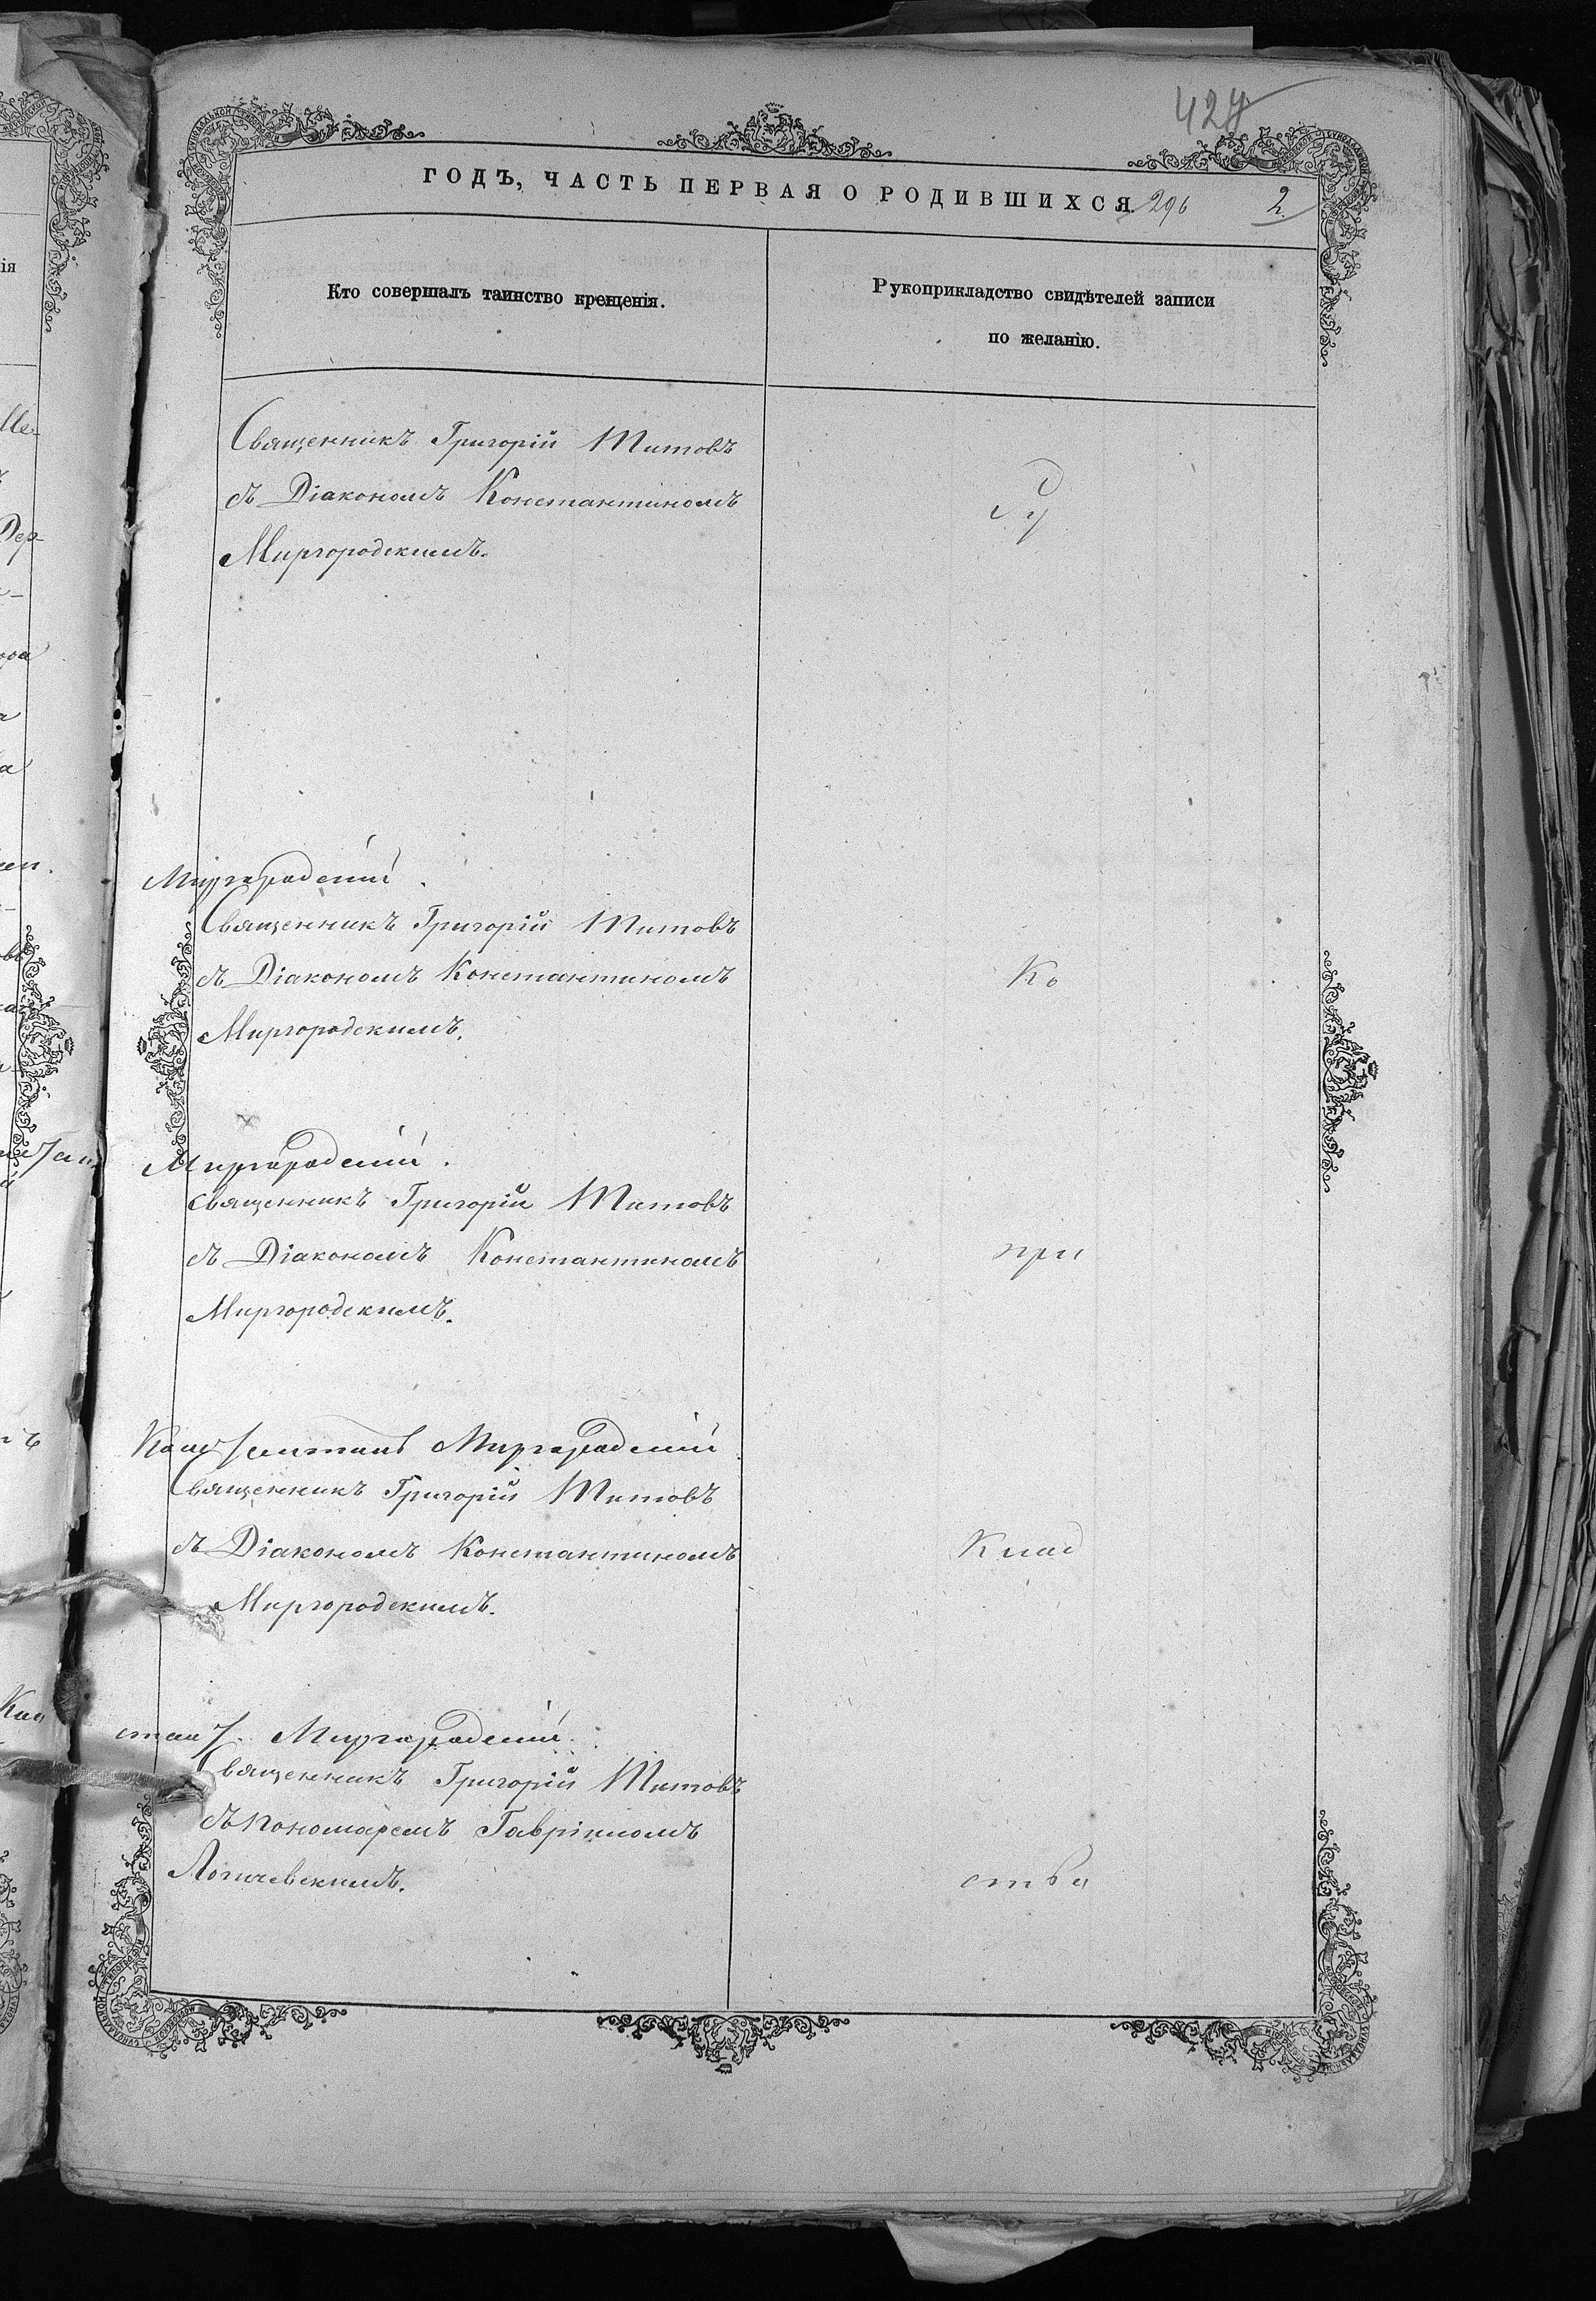 427
ГОДЪ, ЧАСТЬ ПЕРВАЯ О РОДИВШИХСЯ. 296 2
Кто совершалъ таинство крещенія.
Рукоприкладство свидѣтелей записи
по желанію.
Священникъ Григорій Титовъ
съ Діакономъ Константиномъ
Миргородскимъ.
Ру
Миргородскій
Священникъ Григорій Титовъ
съ Діакономъ Константиномъ
Ко
Миргородскимъ.
Миргородскій
Священникъ Григорій Титовъ
съ Діакономъ Константиномъ
при
Миргородскимъ.
Миргородскій
Священникъ Григорій Титовъ
съ Діакономъ Константиномъ
Клад
Миргородскимъ.
Миргородскій
Священникъ Григорій Титовъ
съ Пономаремъ Гавріиломъ
ства